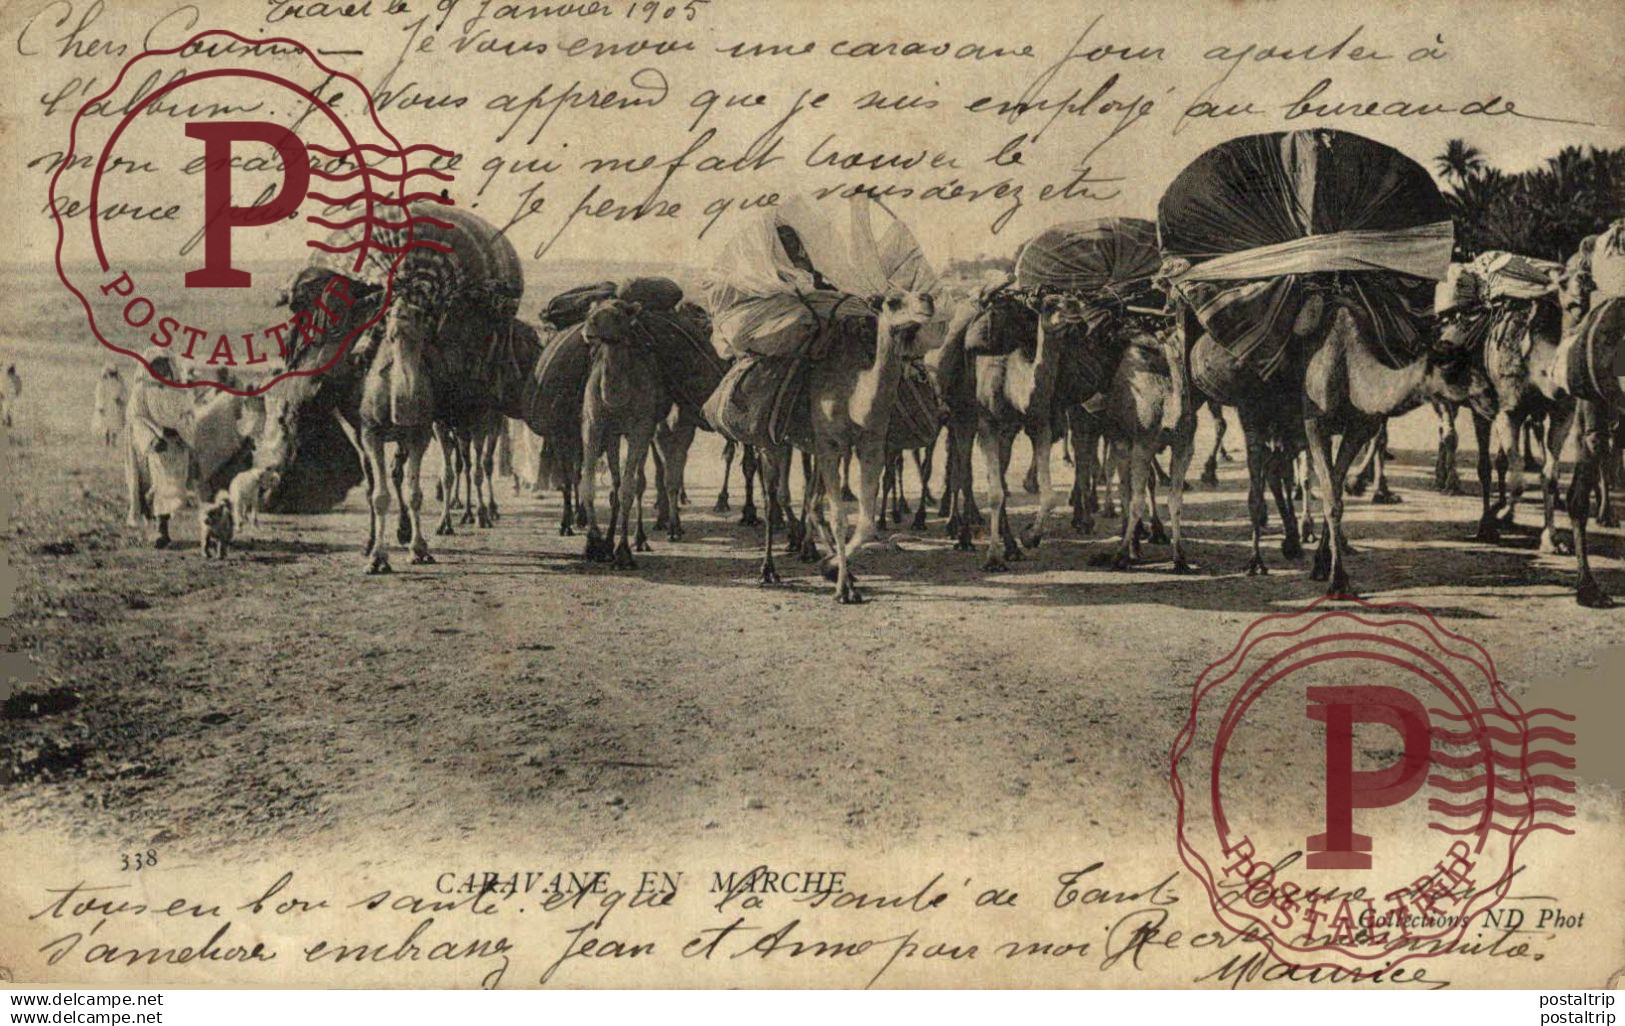 le 9 Janvier 1905
Chers Cousins — Je vous envoi une caravane pour ajouter à
l'album. Je vous apprend que je suis employé au bureau de
mon ce qui me fait trouver le
service plus Je pense que vous devez etre
POSTALTRIP
338
CARAVANE EN MARCHE
tous en bon santé. et que la santé de Tante
s'ameliore embrasez Jean et Anno pour moi
Collections ND Phot
Maurice
POSTALTRIP
www.delcampe.net
www.delcampe.com
postaltrip
postaltrip